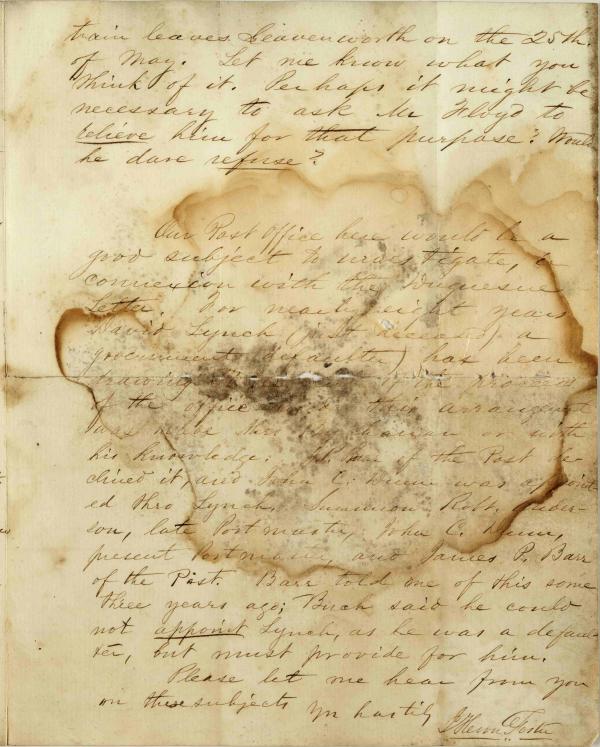 train leaves Leavenworth on the 25th
of May. Let me know what you
think of it. Perhaps it might be
necessary to ask Mr Floyd to
relieve him for that purpose? Would
he dare refuse?
Our Post Office here would be a
good subject to investigate, in
connexion with the Duquesne
Letter. For nearly eight years
David Lynch (just deceased) a
government defaulter) has been
drawing of the proceeds
of the office this arrangement
was made by or with
his knowledge. of the Post de
clined it, and John C. Dunn was appoint
ed thro Lynch. Summon Robt. Ander-
son, late Postmaster, John C. Dunn,
present Postmaster, and James P. Barr
of the Post. Barr told me of this some
three years ago; Buch said he could
not appoint Lynch, as he was a defaul-
ter, but must provide for him.
Please let me hear from you
on these subjects Yrs hastily
J. Heron Foster